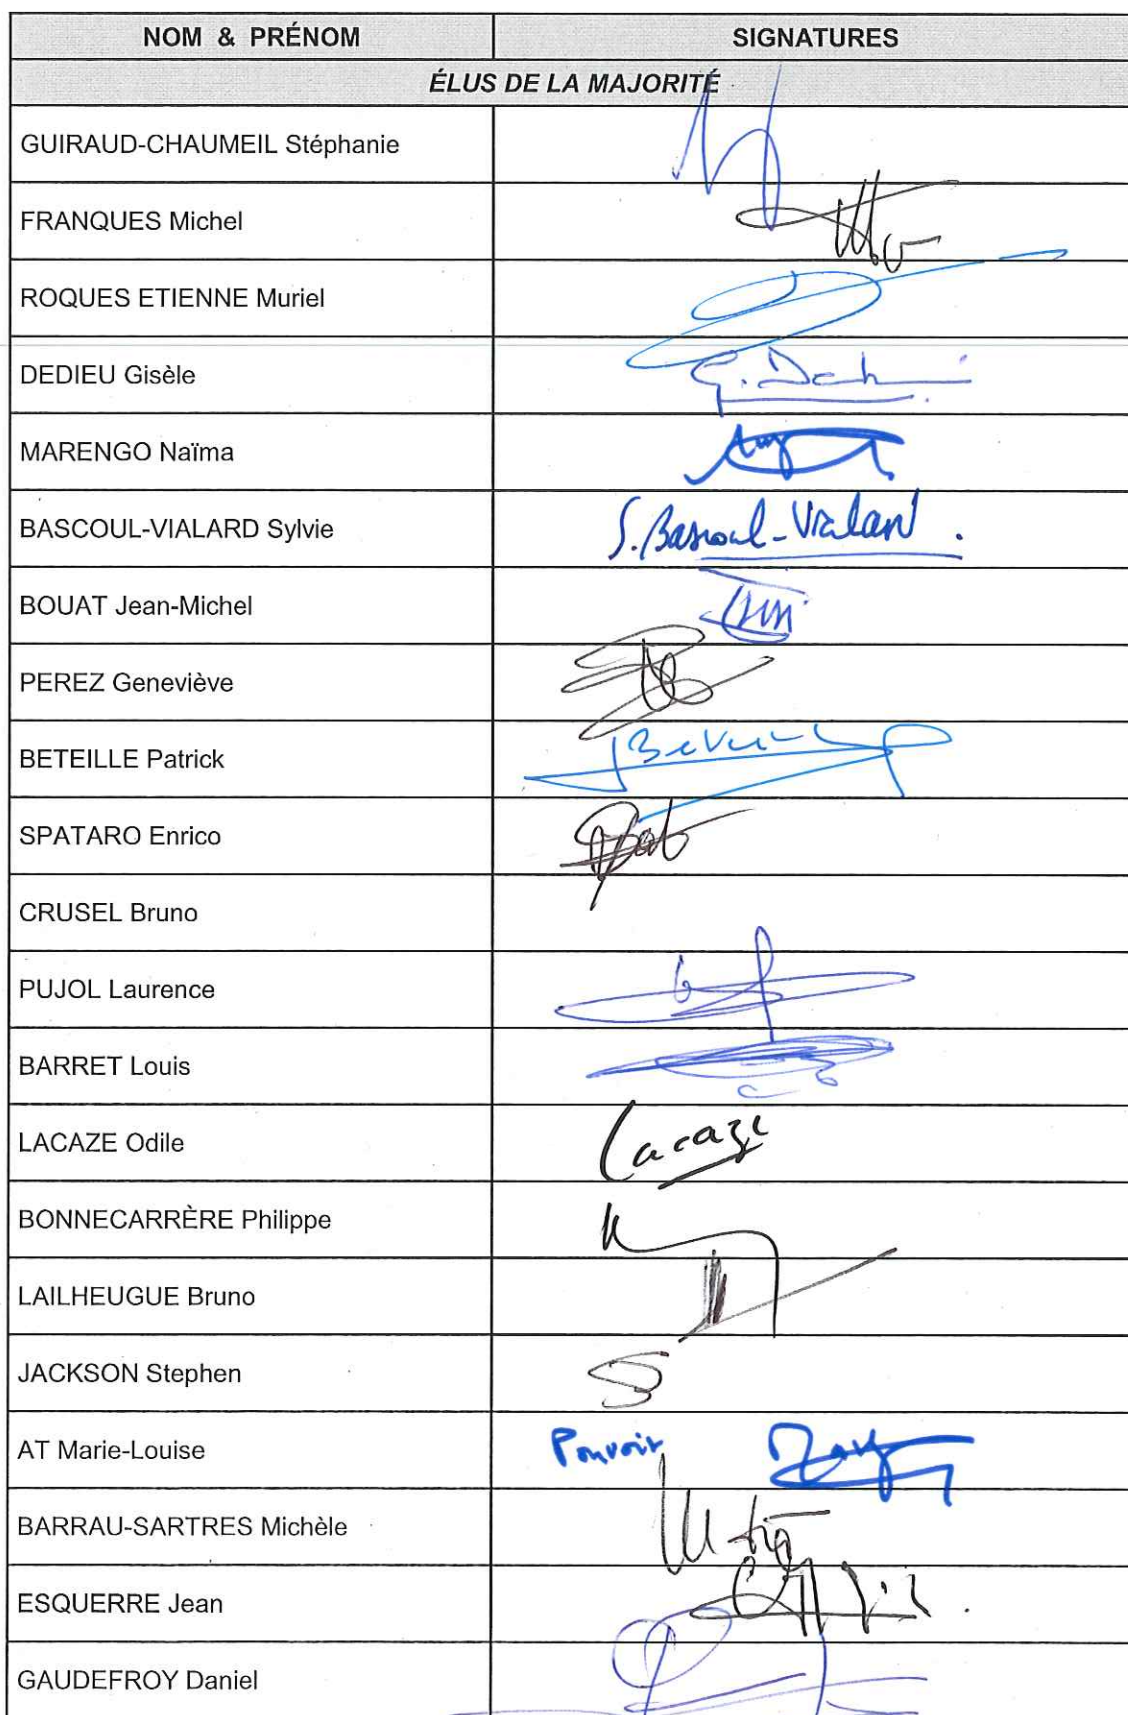 NOM & PRÉNOM SIGNATURES
ÉLUS DE LA MAJORITÉ
GUIRAUD-CHAUMEIL Stéphanie
FRANQUES Michel
ROQUES ETIENNE Muriel
DEDIEU Gisèle
MARENGO Naïma
BASCOUL-VIALARD Sylvie S. Bascoul-Vialard.
BOUAT Jean-Michel
PEREZ Geneviève
BETEILLE Patrick
SPATARO Enrico
CRUSEL Bruno
PUJOL Laurence
BARRET Louis
LACAZE Odile Lacaze
BONNECARRÈRE Philippe
LAILHEUGUE Bruno
JACKSON Stephen
AT Marie-Louise Pouvoir
BARRAU-SARTRES Michèle
ESQUERRE Jean
GAUDEFROY Daniel